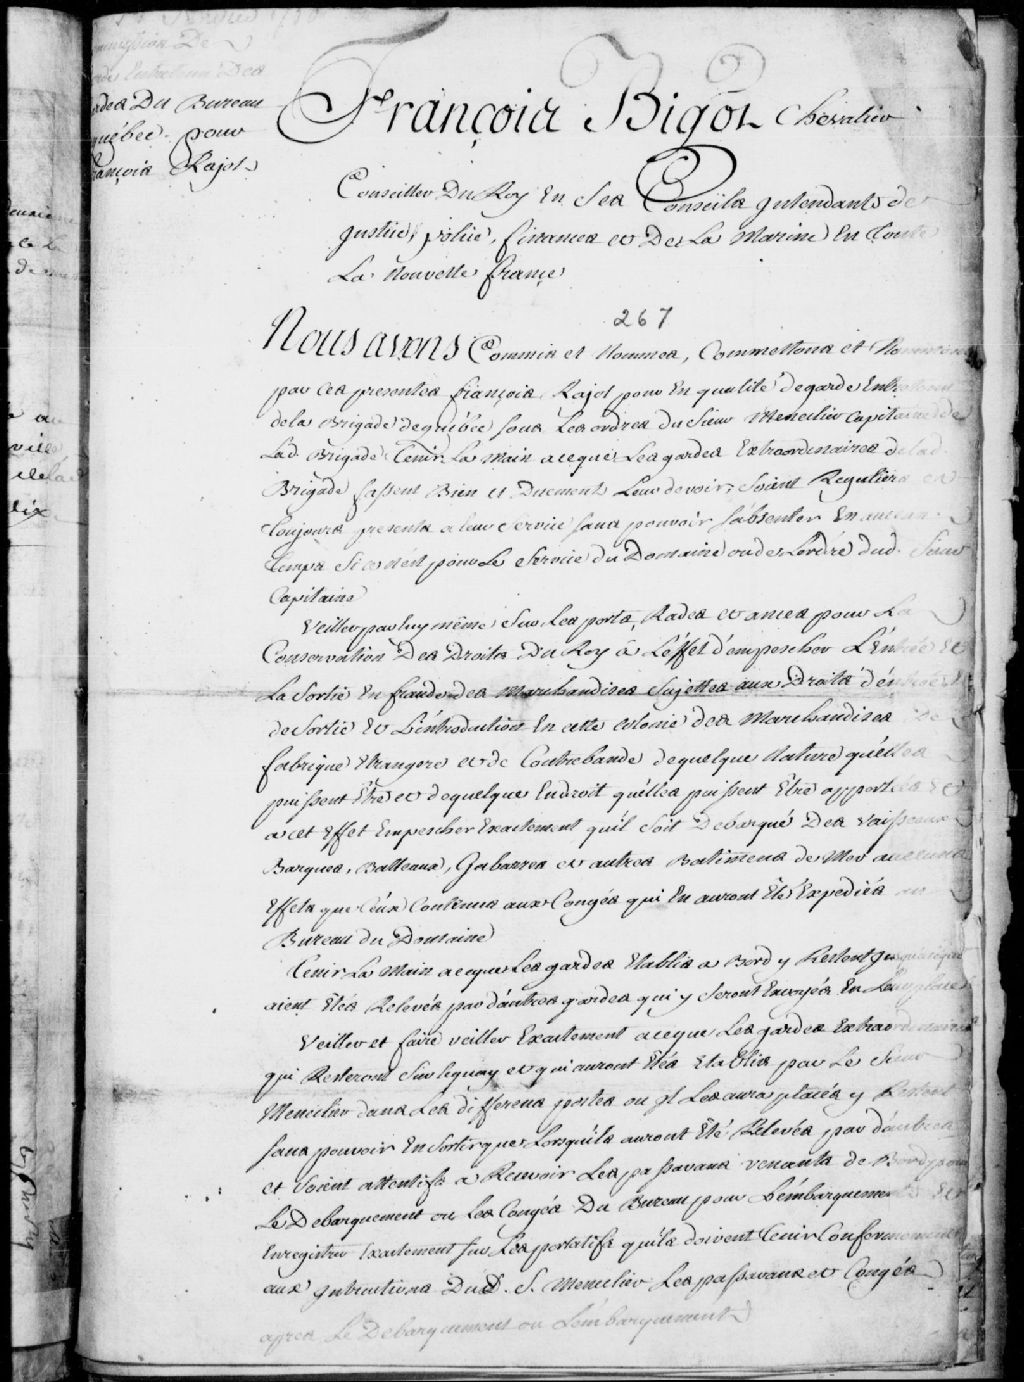 Commission De
garde Entretenu Des
rades Du Bureau
québec pour
françois Rajot
François Bigot Chevalier
Conseiller Du Roy En Ses Conseils Intendant de
Justice, police, finances et De La Marine En Toute
La Nouvelle france
267
Nous avons Commis et Nommés, Commettons et Nommons
par ces presentes françois Rajot pour En qualité de garde Entretenu
de la Brigade de québec sous Les ordres du Sieur Mencilier Capitaine de
Lad. Brigade Tenir La main aceque Les gardes Extraordinaires de lad
Brigade fassent Bien et Duement Leur devoir, Soient Reguliers et
Toujours presents a leur Service sans pouvoir s'absenter En aucun
Temps Si ce n'est pour Le Service du Domaine ou de L'ordre dud. Sieur
Capitaine
Veiller par luy même Sur Les ports, Rades et ances pour La
Conservation Des Droits Du Roy à L'effet d'empescher L'Entrée et
La Sortie En fraude des Marchandises Sujettes aux Droits d'entrée et
de Sortie et L'introduction En cette colonie des Marchandises de
fabrique Etrangere et de Contrebande de quelque Nature qu'elles
puissent Être et de quelque Endroit qu'elles puissent Être apportées Et
a cet Effet Empescher Exactement qu'il Soit Debarqué Des Vaisseaux
Barques, Batteaux, Gabarres et autres Batimens de Mer aucuns
Effets que Ceux Contenus aux Congés qui En auront Eté Expediés au
Bureau du Domaine
Tenir La Main aceque Les gardes Etablis a Bord y Restent Jusqu'a ce qu'ils
aient Étés Relevés par d'autres gardes qui y Seront Envoyés En Leur place
Veiller et faire veiller Exactement aceque Les gardes Extraordinaires
qui Resteront Sur le quay et qui auront Étés Etablis par Le Sieur
Mencilier dans Les differens postes ou Il Les aura placés y Restent
sans pouvoir En Sortir que Lorsqu'ils auront Été Relevés par d'autres
et Soient attentifs a Recevoir Les passavans venants de Bord pour
Le Debarquement ou Les Congés Du Bureau pour L'embarquement Et
Enregistrer Exactement Sur Les portatifs qu'ils doivent Tenir Conformement
aux Instructions Dud. S. Mencilier Les passavans et Congés
apres Le Debarquement ou L'embarquement